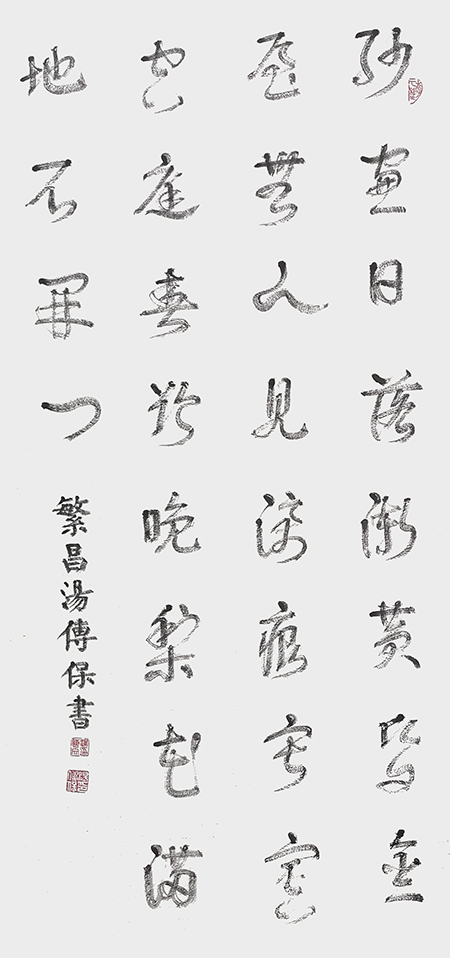 紗窗日落漸黃昏金
屋無人見淚痕寂寞
空庭春欲晚梨花滿
地不開門
繁昌湯傳保書